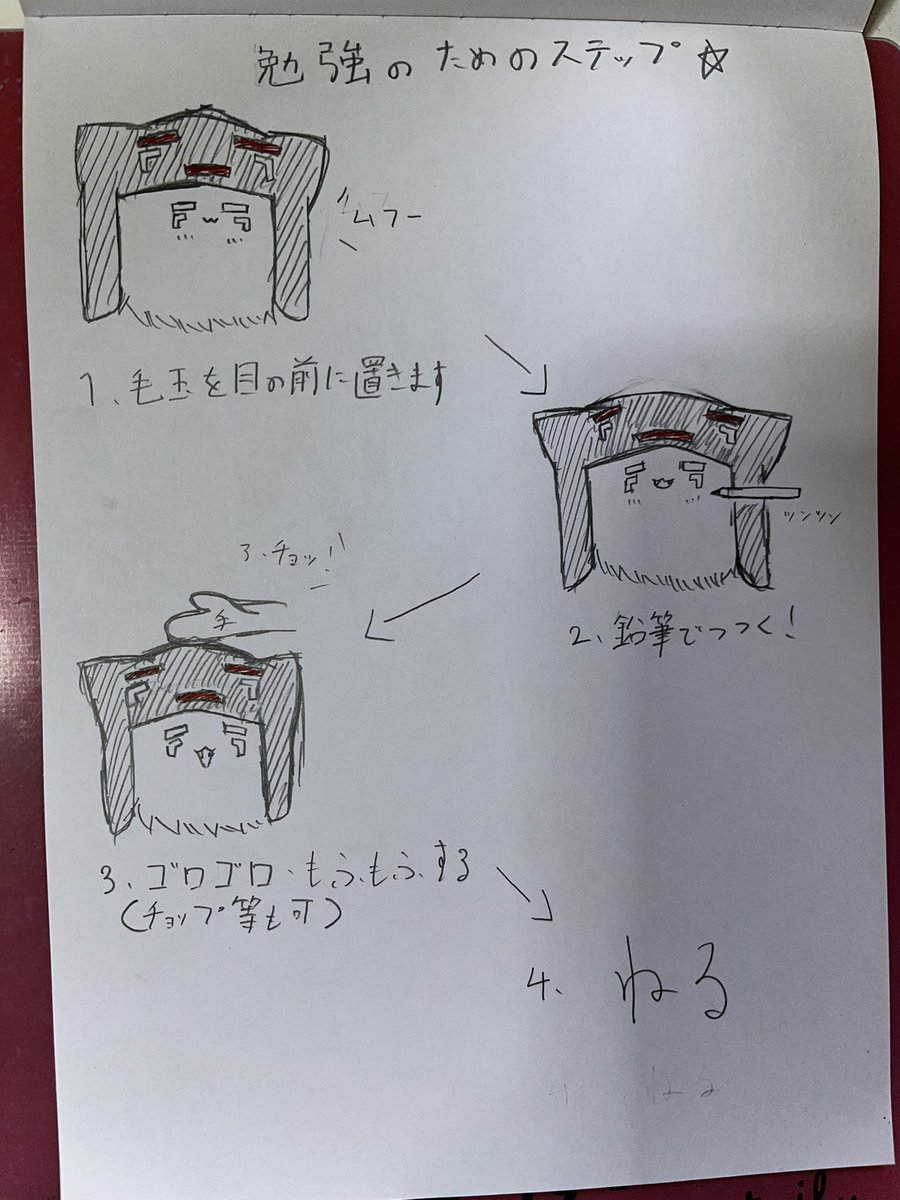 勉強のためのステップ☆
ムフー
1、毛玉を目の前に置きます
ツンツン
2、鉛筆でつつく!
チョッ!
手
3、ゴロゴロ・もふもふする
(チョップ等も可)
4、ねる